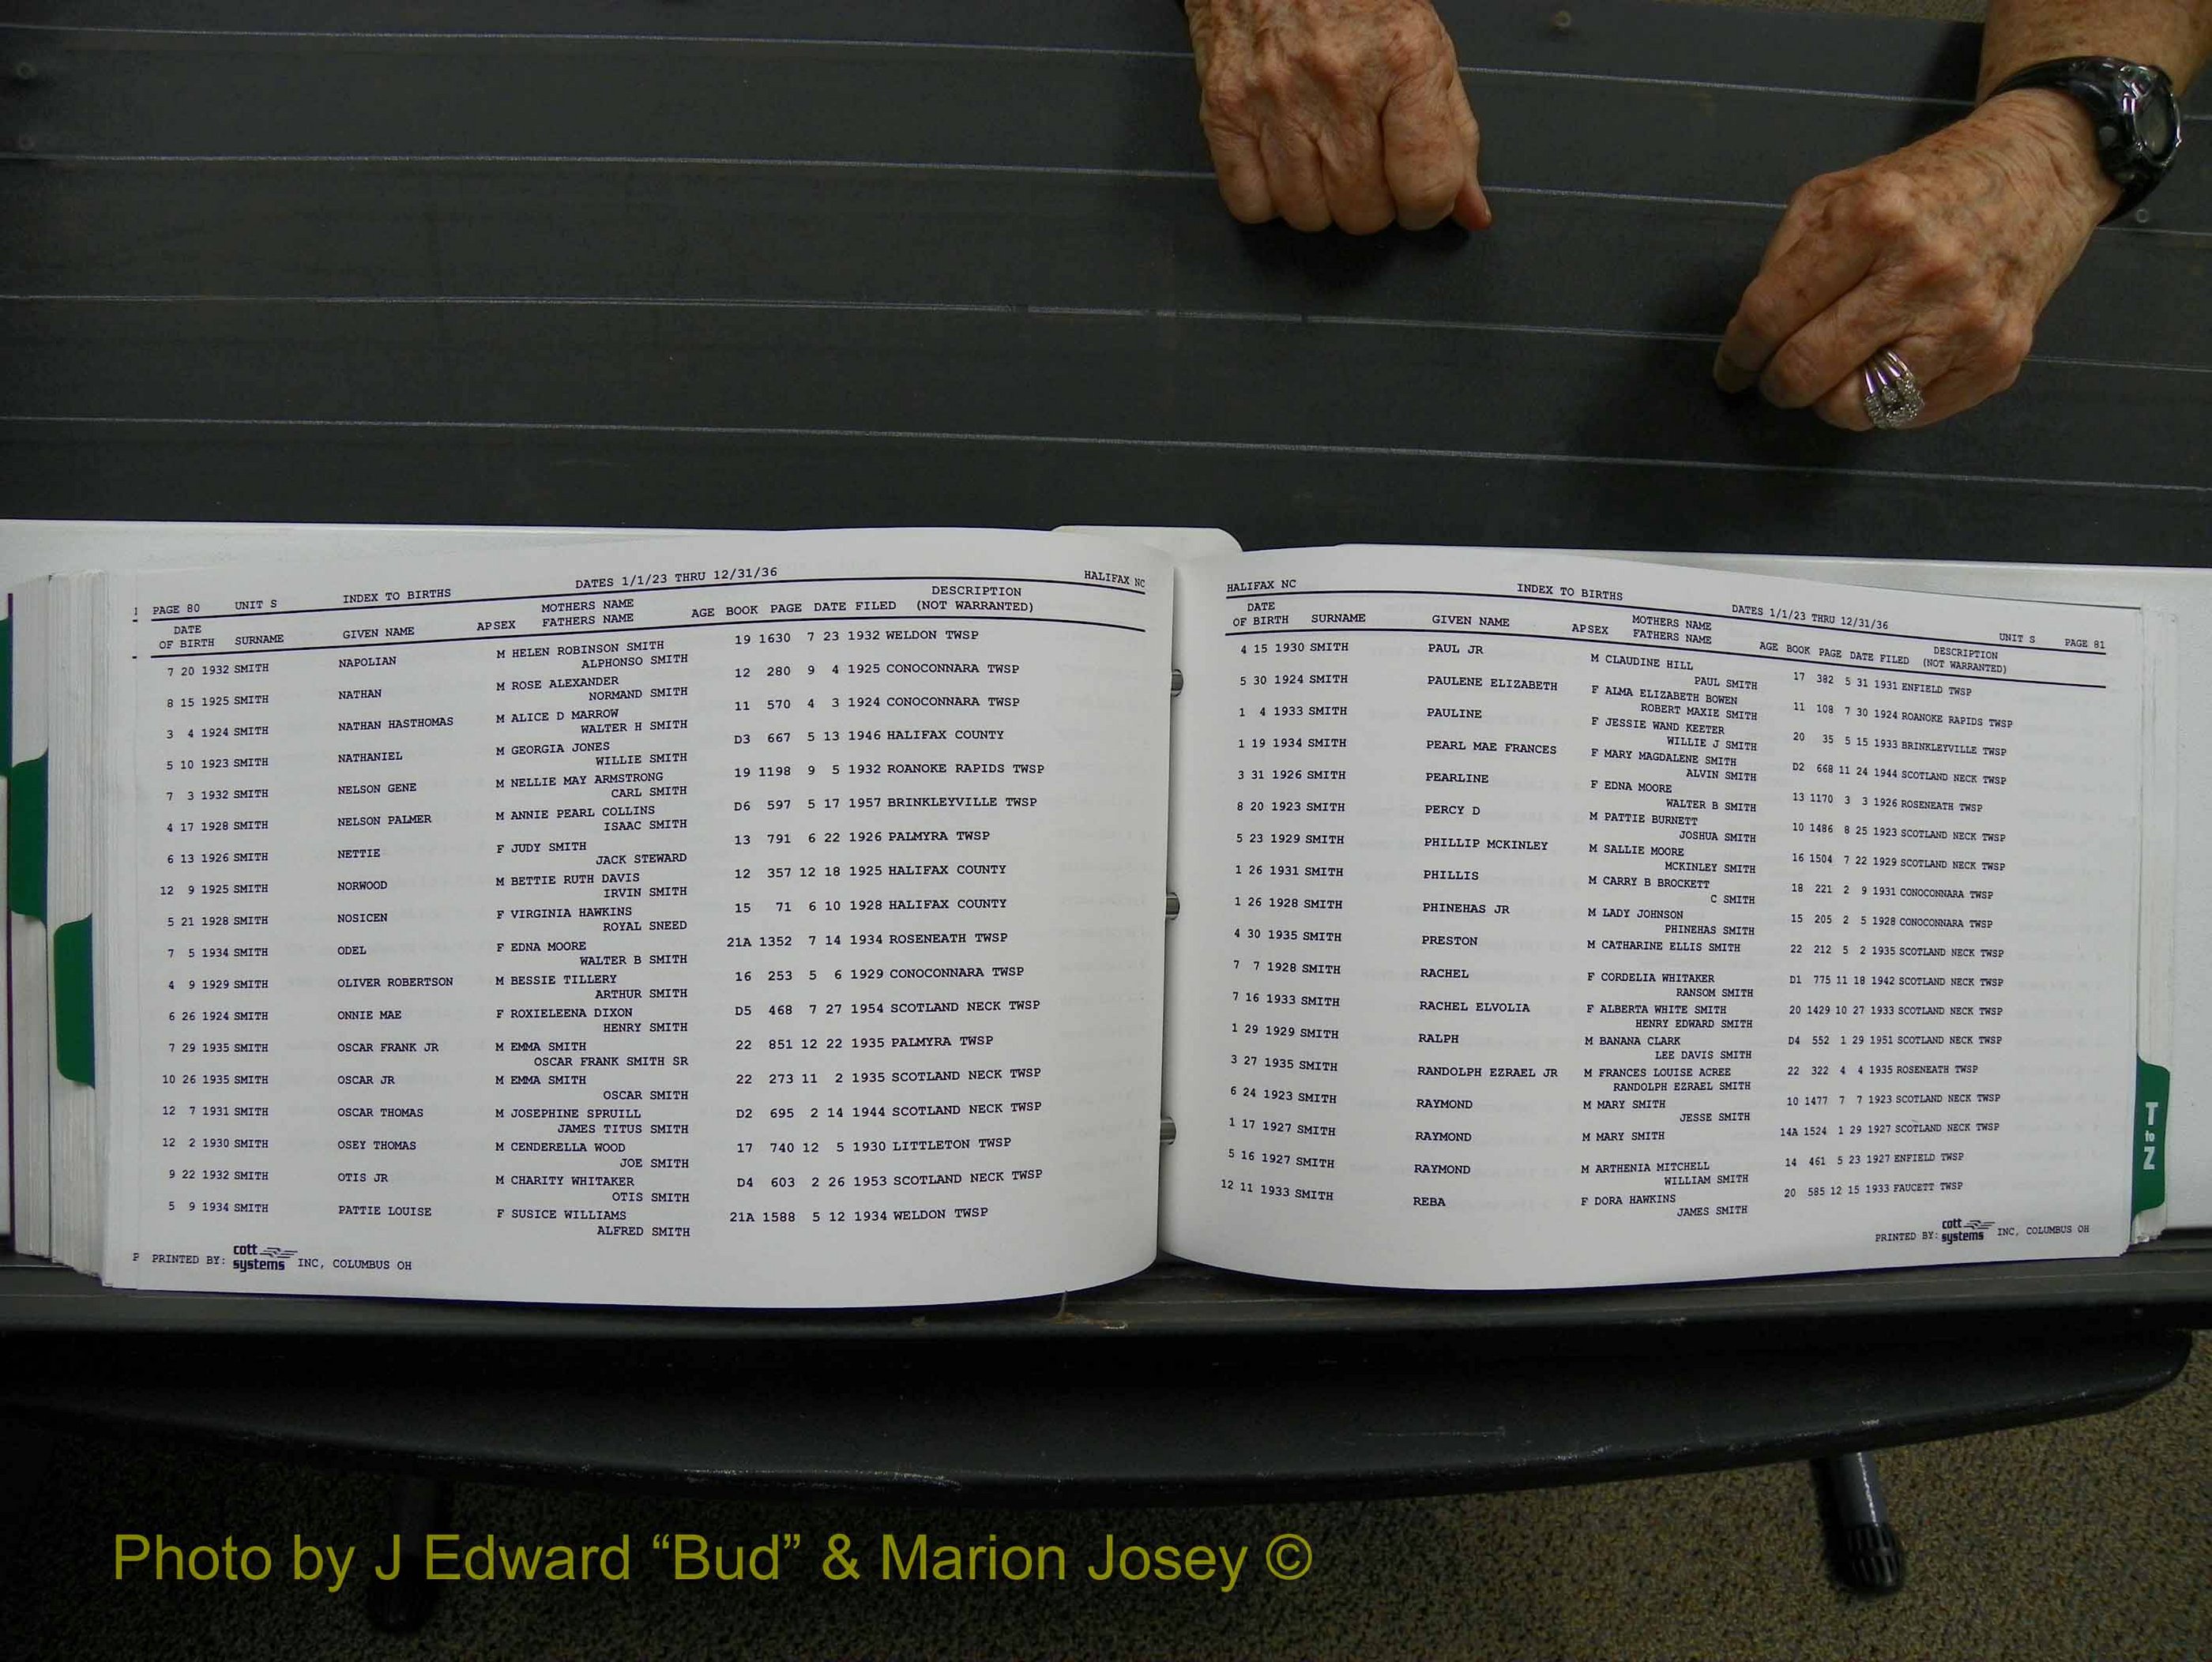 PAGE 80 UNIT S INDEX TO BIRTHS DATES 1/1/23 THRU 12/31/36 HALIFAX NC
DATE OF BIRTH SURNAME GIVEN NAME AP SEX MOTHERS NAME FATHERS NAME AGE BOOK PAGE DATE FILED DESCRIPTION (NOT WARRANTED)
7 20 1932 SMITH NAPOLIAN M HELEN ROBINSON SMITH 19 1630 7 23 1932 WELDON TWSP
ALPHONSO SMITH
8 15 1925 SMITH NATHAN M ROSE ALEXANDER 12 280 9 4 1925 CONOCONNARA TWSP
NORMAND SMITH
3 4 1924 SMITH NATHAN HASTHOMAS M ALICE D MARROW 11 570 4 3 1924 CONOCONNARA TWSP
WALTER H SMITH
5 10 1923 SMITH NATHANIEL M GEORGIA JONES D3 667 5 13 1946 HALIFAX COUNTY
WILLIE SMITH
7 3 1932 SMITH NELSON GENE M NELLIE MAY ARMSTRONG 19 1198 9 5 1932 ROANOKE RAPIDS TWSP
CARL SMITH
4 17 1928 SMITH NELSON PALMER M ANNIE PEARL COLLINS D6 597 5 17 1957 BRINKLEYVILLE TWSP
ISAAC SMITH
6 13 1926 SMITH NETTIE F JUDY SMITH 13 791 6 22 1926 PALMYRA TWSP
JACK STEWARD
12 9 1925 SMITH NORWOOD M BETTIE RUTH DAVIS 12 357 12 18 1925 HALIFAX COUNTY
IRVIN SMITH
5 21 1928 SMITH NOSICEN F VIRGINIA HAWKINS 15 71 6 10 1928 HALIFAX COUNTY
ROYAL SNEED
7 5 1934 SMITH ODEL F EDNA MOORE 21A 1352 7 14 1934 ROSENEATH TWSP
WALTER B SMITH
4 9 1929 SMITH OLIVER ROBERTSON M BESSIE TILLERY 16 253 5 6 1929 CONOCONNARA TWSP
ARTHUR SMITH
6 26 1924 SMITH ONNIE MAE F ROXIELEENA DIXON D5 468 7 27 1954 SCOTLAND NECK TWSP
HENRY SMITH
7 29 1935 SMITH OSCAR FRANK JR M EMMA SMITH 22 851 12 22 1935 PALMYRA TWSP
OSCAR FRANK SMITH SR
10 26 1935 SMITH OSCAR JR M EMMA SMITH 22 273 11 2 1935 SCOTLAND NECK TWSP
OSCAR SMITH
12 7 1931 SMITH OSCAR THOMAS M JOSEPHINE SPRUILL D2 695 2 14 1944 SCOTLAND NECK TWSP
JAMES TITUS SMITH
12 2 1930 SMITH OSEY THOMAS M CENDERELLA WOOD 17 740 12 5 1930 LITTLETON TWSP
JOE SMITH
9 22 1932 SMITH OTIS JR M CHARITY WHITAKER D4 603 2 26 1953 SCOTLAND NECK TWSP
OTIS SMITH
5 9 1934 SMITH PATTIE LOUISE F SUSICE WILLIAMS 21A 1588 5 12 1934 WELDON TWSP
ALFRED SMITH
P PRINTED BY: cott systems INC, COLUMBUS OH
HALIFAX NC INDEX TO BIRTHS DATES 1/1/23 THRU 12/31/36 UNIT S PAGE 81
DATE OF BIRTH SURNAME GIVEN NAME AP SEX MOTHERS NAME FATHERS NAME AGE BOOK PAGE DATE FILED DESCRIPTION (NOT WARRANTED)
4 15 1930 SMITH PAUL JR M CLAUDINE HILL 17 382 5 31 1931 ENFIELD TWSP
PAUL SMITH
5 30 1924 SMITH PAULENE ELIZABETH F ALMA ELIZABETH BOWEN 11 108 7 30 1924 ROANOKE RAPIDS TWSP
ROBERT MAXIE SMITH
1 4 1933 SMITH PAULINE F JESSIE WAND KEETER 20 35 5 15 1933 BRINKLEYVILLE TWSP
WILLIE J SMITH
1 19 1934 SMITH PEARL MAE FRANCES F MARY MAGDALENE SMITH D2 668 11 24 1944 SCOTLAND NECK TWSP
ALVIN SMITH
3 31 1926 SMITH PEARLINE F EDNA MOORE 13 1170 3 3 1926 ROSENEATH TWSP
WALTER B SMITH
8 20 1923 SMITH PERCY D M PATTIE BURNETT 10 1486 8 25 1923 SCOTLAND NECK TWSP
JOSHUA SMITH
5 23 1929 SMITH PHILLIP MCKINLEY M SALLIE MOORE 16 1504 7 22 1929 SCOTLAND NECK TWSP
MCKINLEY SMITH
1 26 1931 SMITH PHILLIS M CARRY B BROCKETT 18 221 2 9 1931 CONOCONNARA TWSP
C SMITH
1 26 1928 SMITH PHINEHAS JR M LADY JOHNSON 15 205 2 5 1928 CONOCONNARA TWSP
PHINEHAS SMITH
4 30 1935 SMITH PRESTON M CATHARINE ELLIS SMITH 22 212 5 2 1935 SCOTLAND NECK TWSP
7 7 1928 SMITH RACHEL F CORDELIA WHITAKER D1 775 11 18 1942 SCOTLAND NECK TWSP
RANSOM SMITH
7 16 1933 SMITH RACHEL ELVOLIA F ALBERTA WHITE SMITH 20 1429 10 27 1933 SCOTLAND NECK TWSP
HENRY EDWARD SMITH
1 29 1929 SMITH RALPH M BANANA CLARK D4 552 1 29 1951 SCOTLAND NECK TWSP
LEE DAVIS SMITH
3 27 1935 SMITH RANDOLPH EZRAEL JR M FRANCES LOUISE ACREE 22 322 4 4 1935 ROSENEATH TWSP
RANDOLPH EZRAEL SMITH
6 24 1923 SMITH RAYMOND M MARY SMITH 10 1477 7 7 1923 SCOTLAND NECK TWSP
JESSE SMITH
1 17 1927 SMITH RAYMOND M MARY SMITH 14A 1524 1 29 1927 SCOTLAND NECK TWSP
5 16 1927 SMITH RAYMOND M ARTHENIA MITCHELL 14 461 5 23 1927 ENFIELD TWSP
WILLIAM SMITH
12 11 1933 SMITH REBA F DORA HAWKINS 20 585 12 15 1933 FAUCETT TWSP
JAMES SMITH
PRINTED BY: cott systems INC, COLUMBUS OH
T to Z
Photo by J Edward “Bud” & Marion Josey ©